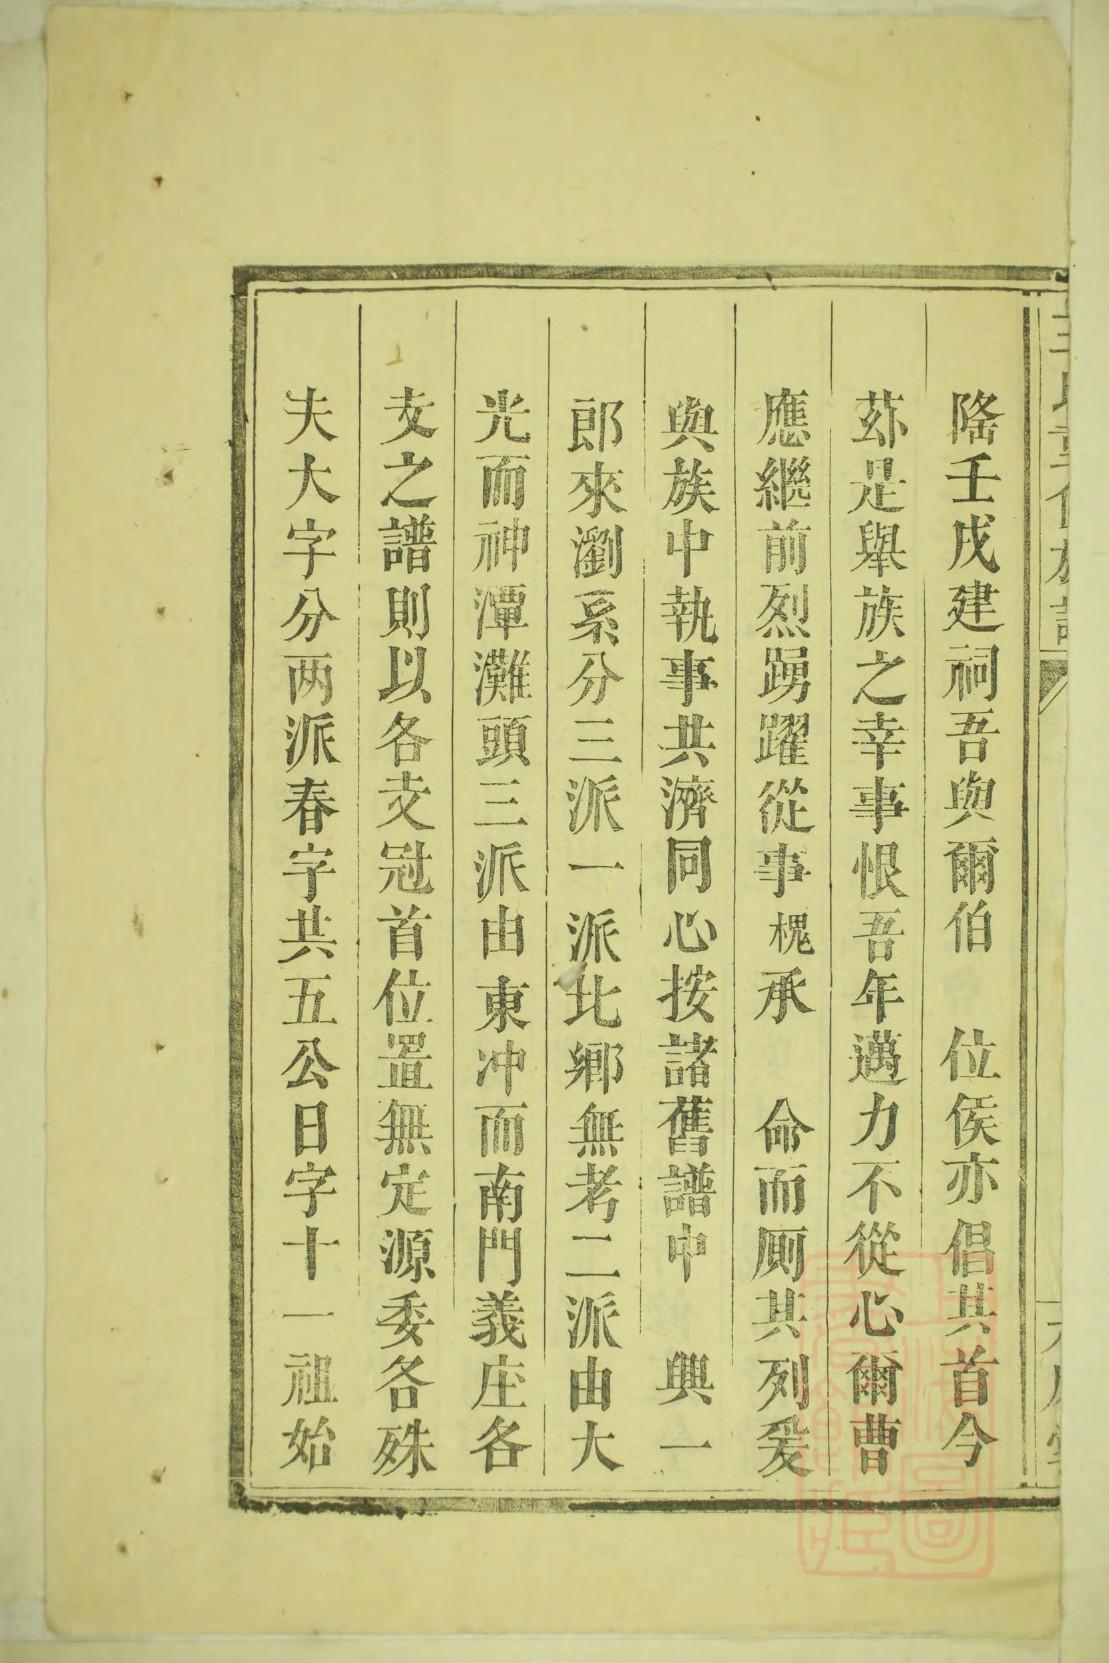 隆壬戌建祠吾與爾伯　位侯亦倡其首今
茲是舉族之幸事恨吾年邁力不從心爾曹
應繼前烈踴躍從事槐承　命而厠其列爰
與族中執事共濟同心按諸舊譜中　興一
郎來瀏系分三派一派北鄉無考二派由大
光而神潭灘頭三派由東冲而南門義庄各
支之譜則以各支冠首位置無定源委各殊
夫大字分两派春字共五公日字十一祖始